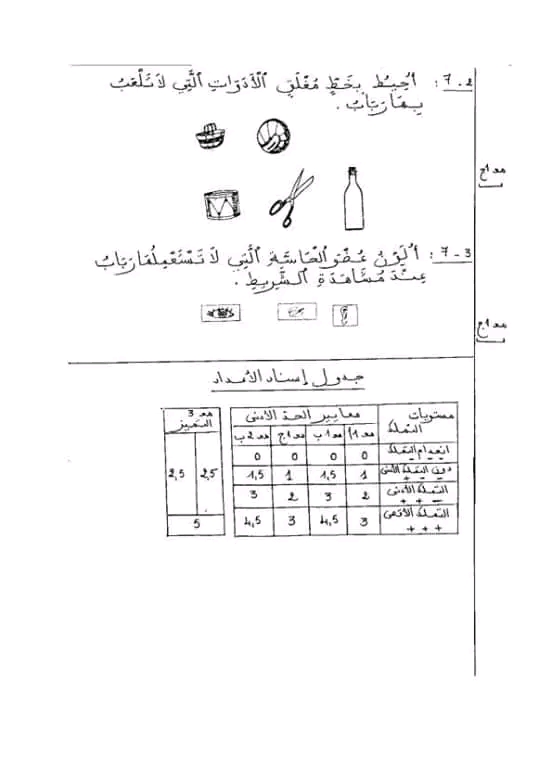 7-2: أُحِيطُ بِخَطٍّ مُغْلَقٍ الْأَدَوَاتِ الَّتِي لَا تَلْعَبُ
بِهَا رَبَابُ.
مع 1ج
7-3: أُلَوِّنُ عُضْوَ الْحَاسَّةِ الَّتِي لَا تَسْتَعْمِلُهَا رَبَابُ
عِنْدَ مُشَاهَدَةِ الشَّرِيطِ.
مع 1ج
جدول إسناد الأعداد
مستويات التملك
معايير الحد الأدنى
مع 3 التميز
مع 1أ
مع 1ب
مع 1ج
مع 2ب
انعدام التملك
0 0 0 0
دون التملك الأدنى
1 1,5 1 1,5
2,5 2,5
التملك الأدنى
+ + −
2 3 2 3
التملك الأقصى
+ + +
3 4,5 3 4,5
5